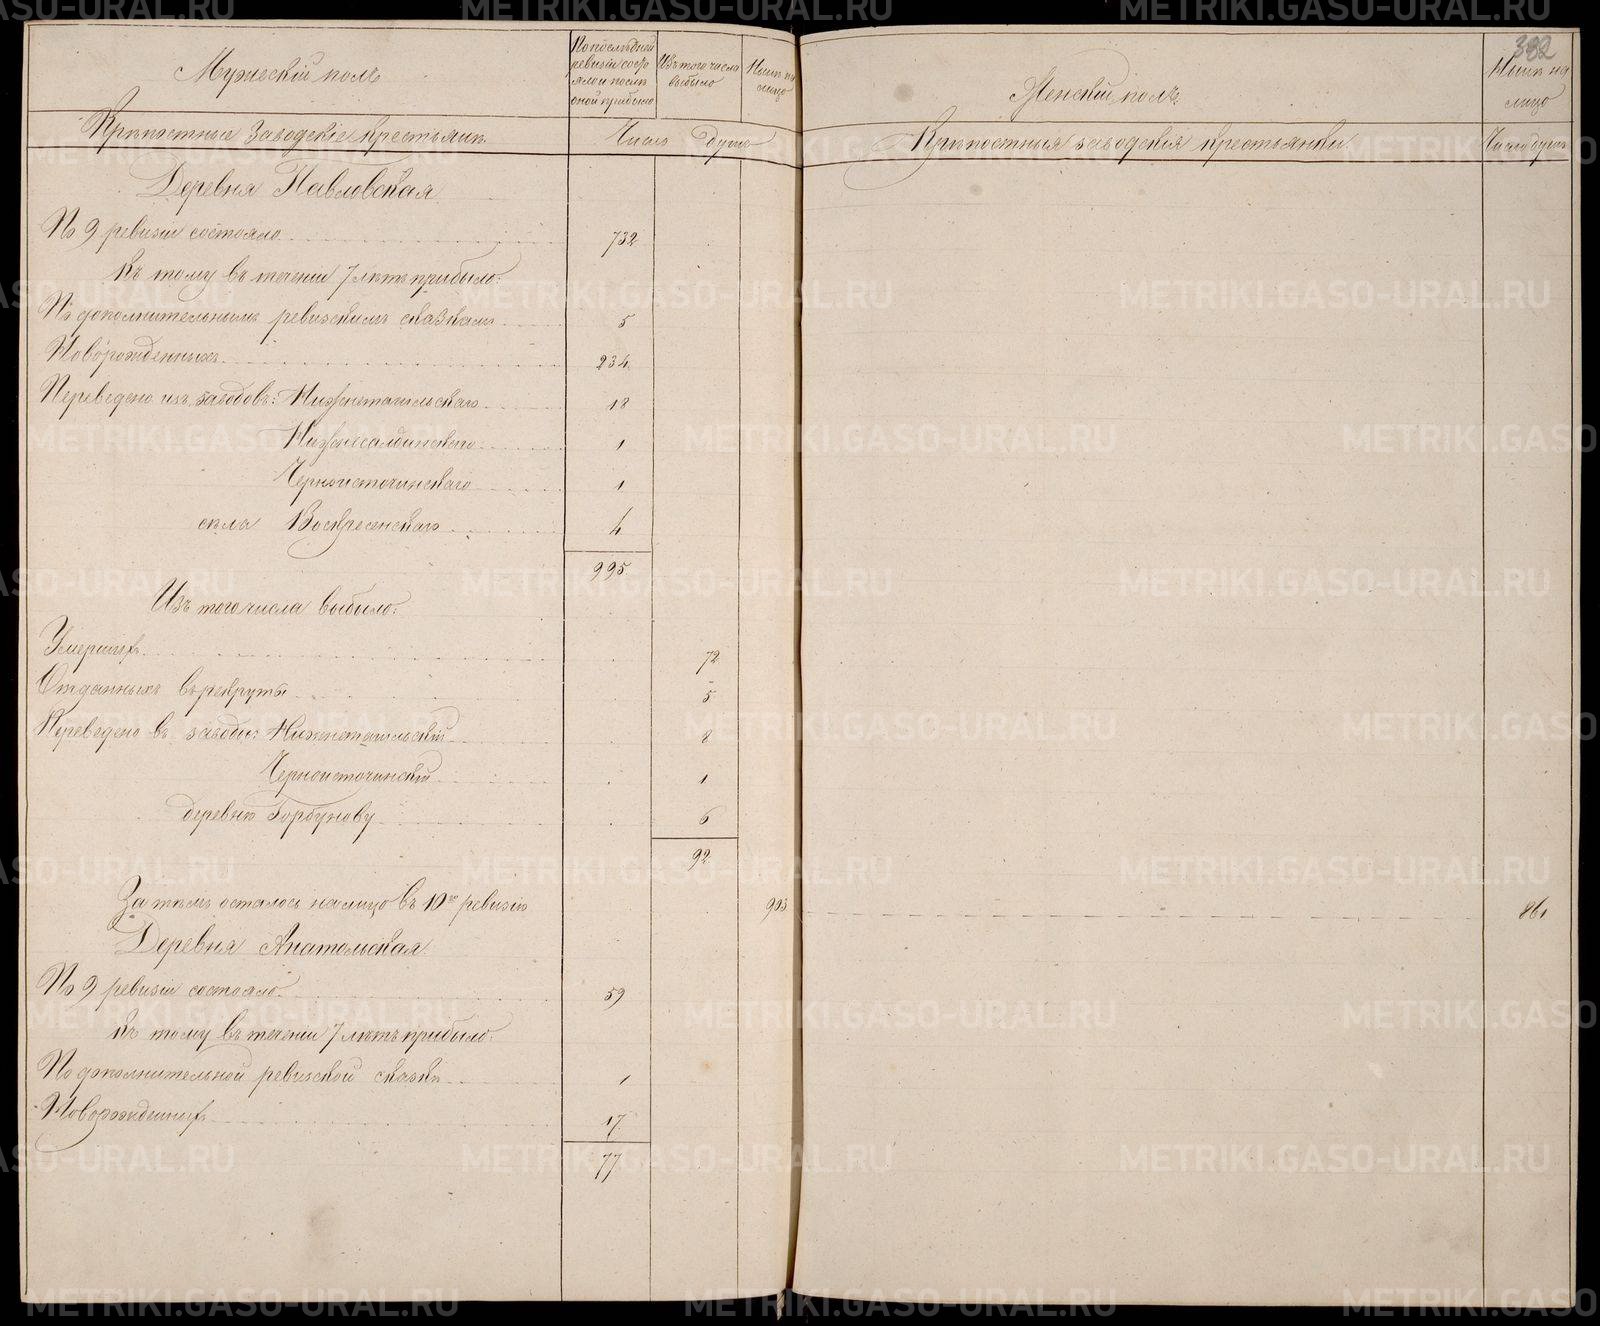 382
Мужескій полъ
По послѣдней ревизіи состояло и послѣ оной прибыло
Изъ того числа выбыло
Нынѣ на лицо
Женскій полъ
Нынѣ на лицо
Крѣпостные заводскіе крестьяне
Число душъ
Крѣпостныя заводскія крестьянки
Число душъ
Деревня Павловская
По 9 ревизіи состояло 732
Къ тому въ теченіи 7 лѣтъ прибыло:
По дополнительнымъ ревизскимъ сказкамъ 5
Новорожденныхъ 234
Переведено изъ заводовъ: Нижнетагильскаго 18
Нижнесалдинскаго 1
Черноисточинскаго 1
села Воскресенскаго 4
995
Изъ того числа выбыло:
Умершихъ 72
Отданныхъ въ рекруты 5
Переведено въ заводы: Нижнетагильскій 8
Черноисточинскій 1
деревню Горбунову 6
92
За тѣмъ осталось на лицо въ 10ю ревизію 903 861
Деревня Анатольская
По 9 ревизіи состояло 59
Къ тому въ теченіи 7 лѣтъ прибыло:
По дополнительной ревизской сказкѣ 1
Новорожденныхъ 17
77
METRIKI.GASO-URAL.RU